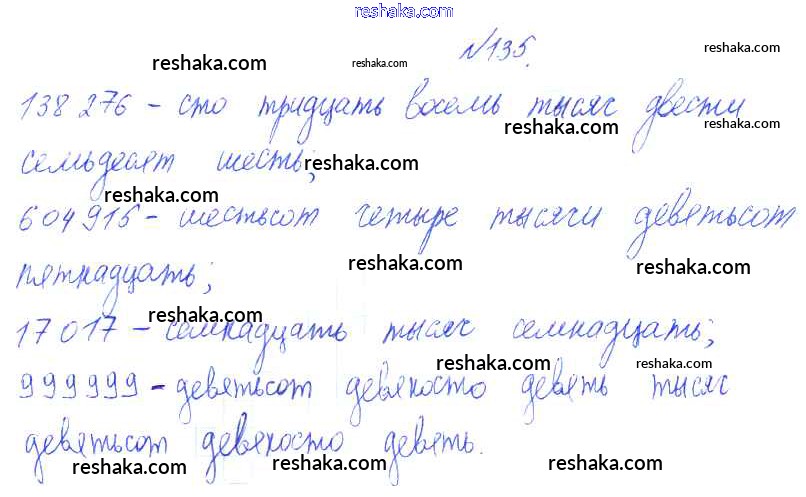 reshaka.com
№135.
reshaka.com reshaka.com reshaka.com
138 276 - сто тридцать восемь тысяч двести
reshaka.com reshaka.com
семьдесят шесть;
reshaka.com
reshaka.com
604 915 - шестьсот четыре тысячи девятьсот
пятнадцать;
reshaka.com reshaka.com
reshaka.com
17 017 - семнадцать тысяч семнадцать;
reshaka.com reshaka.com
999 999 - девятьсот девяносто девять тысяч
reshaka.com
девятьсот девяносто девять.
reshaka.com reshaka.com reshaka.com